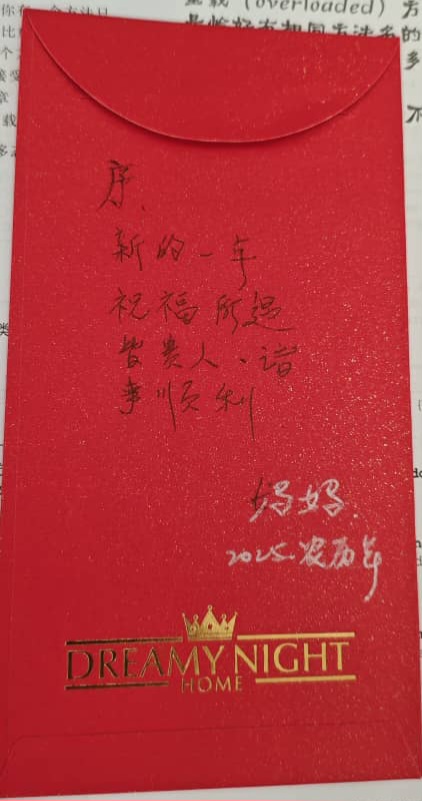 重载（overloaded）方
多
不
序、
新的一年
祝福所遇
皆贵人、诸
事顺利
妈妈
2025.农历年
DREAMY NIGHT
HOME